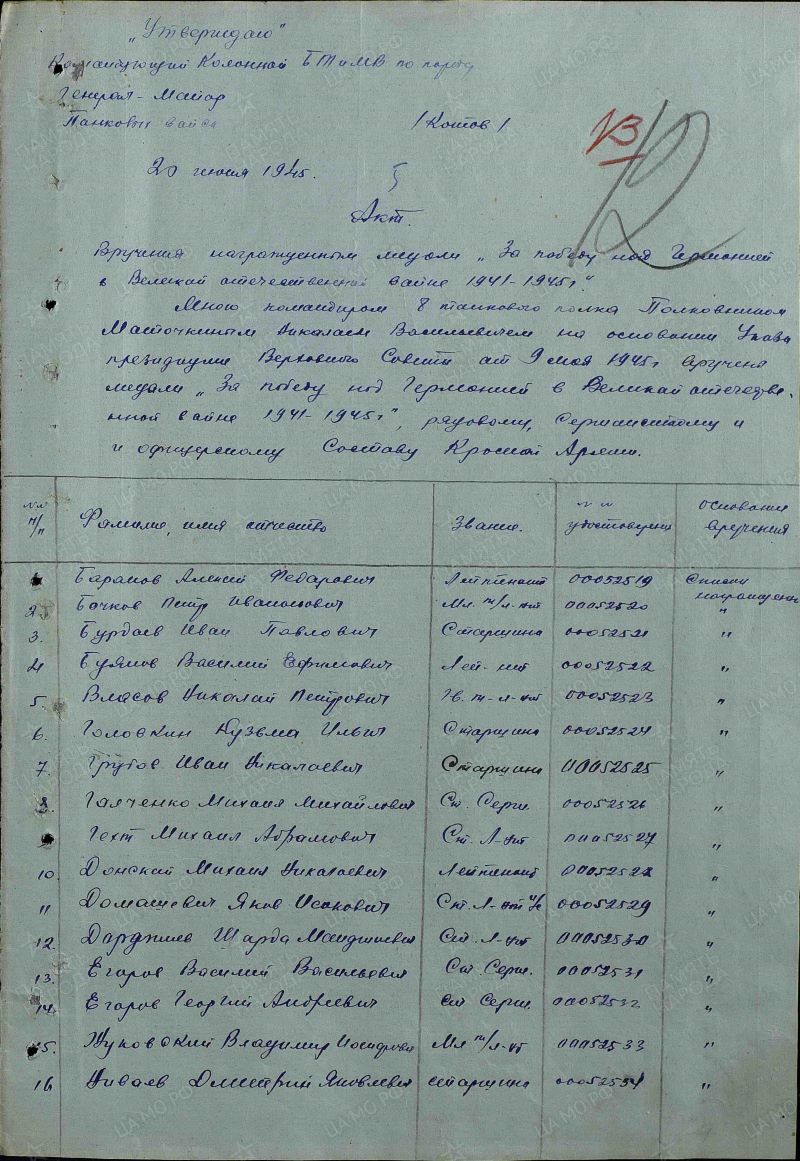 „Утверждаю"
Командующий Колонной БТ и МВ по параду
Генерал-Майор
Танковых войск /Котов/
13
12
20 июня 1945.
Акт.
Вручения награжденным медали „За победу над Германией
в Великой отечественной войне 1941-1945г".
Мною командиром 8 танкового полка Полковником
Маточкиным Николаем Васильевичем на основании Указа
президиума Верховного Совета от 9 мая 1945г вручена
медали „За победу над Германией в Великой отечестве-
нной войне 1941-1945г", рядовому, Сержантскому и
и офицерскому Составу Красной Армии.
№№ п/п Фамилие, имя отчество Звание. №№ удостоверения Основания вручения
1 Баранов Алексей Федарович Лейтенант 00052519 Списки награжденн
2. Бочков Петр Иванович Мл. т/л-нт 00052520 "
3. Бурдаев Иван Павлович Старшина 00052521 "
4 Буянов Василий Ефимович Лей-нт 00052522 "
5. Власов Николай Петрович Гв. т-л-нт 00052523 "
6. Головкин Кузьма Ильич Старшина 00052524 "
7. Грубов Иван Николаевич Старшина 00052525 "
8. Галченко Михаил Михайлович Ст. Серж. 00052526 "
Гехт Михаил Абрамович Ст. Л-нт 00052527 "
10. Донской Михаил Николаевич Лейтенант 00052528 "
11 Домашевич Яков Исакович Ст. Л-нт 00052529 "
12. Дарджиев Шарда Ст. Л-нт 00052530 "
13. Егоров Василий Васильевич Ст. Серж. 00052531 "
14. Егоров Георгий Андреевич ст Серж. 00052532 "
15. Жуковский Владимир Мл т/л-нт 00052533 "
16 Ниваев Дмитрий Яковлевич старшина 00052534 "